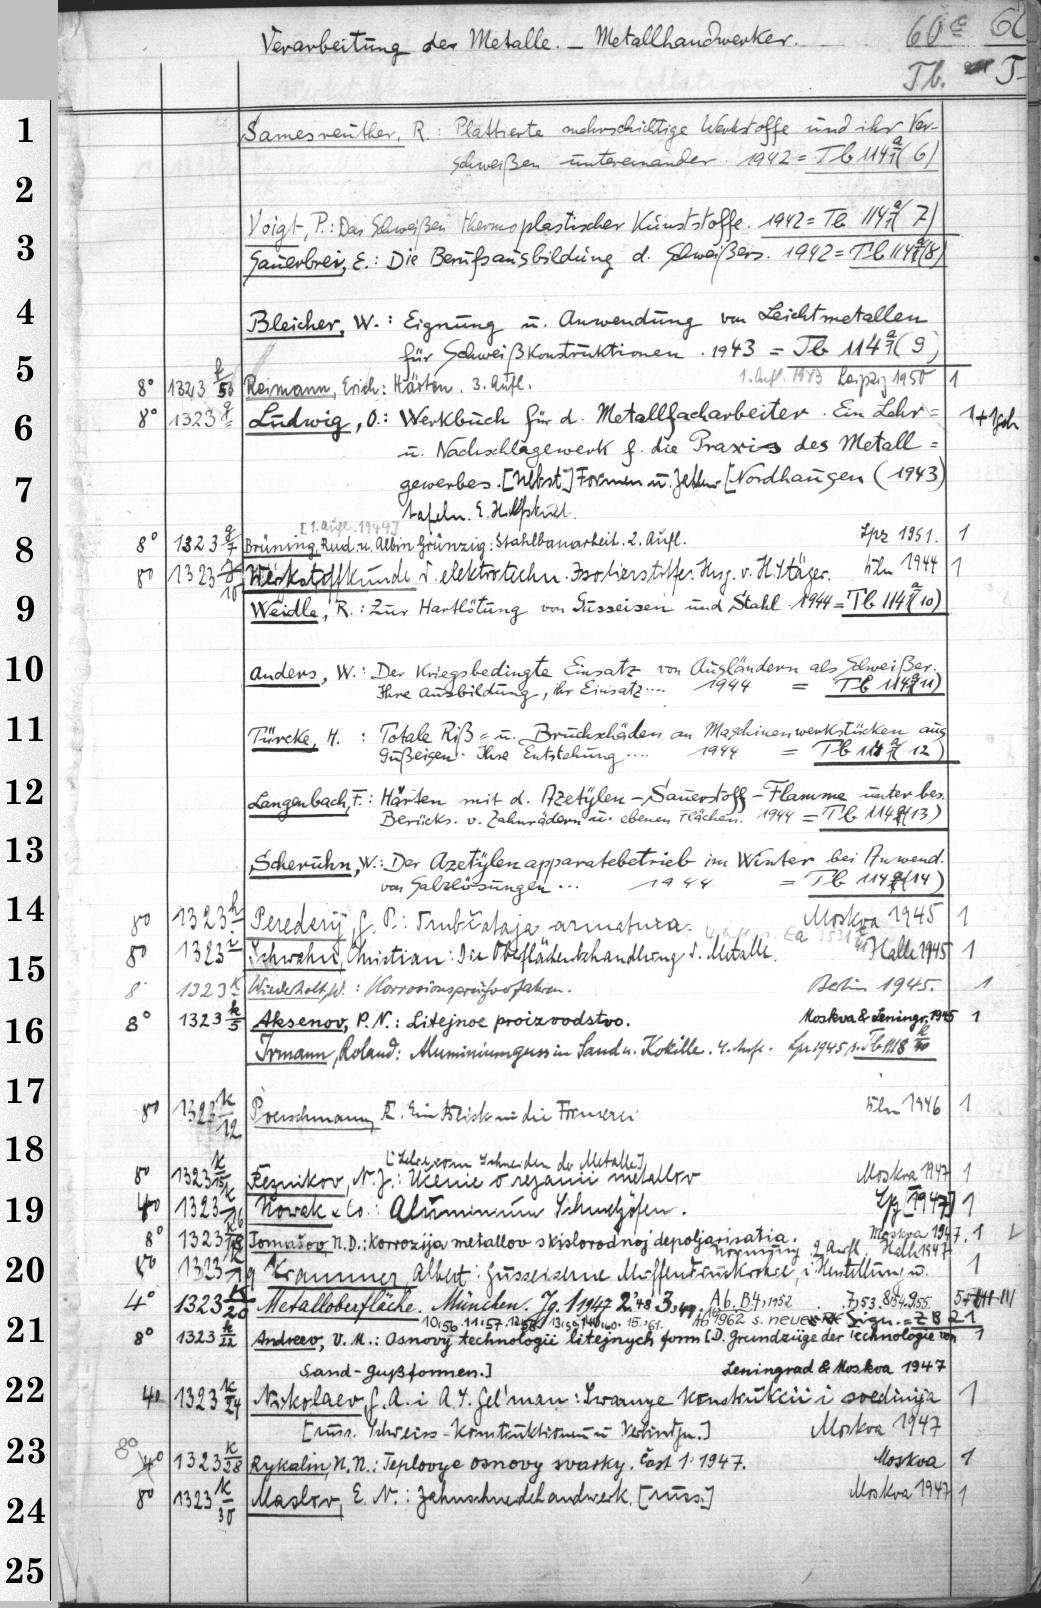 Verarbeitung der Metalle. – Metallhandwerker. 60e 62
Tb. T
1
Samesreuther, R.: Plattierte mehrschichtige Werkstoffe und ihr Ver-
schweißen untereinander. 1942 = Tb 114 a/7 (6)
2
Voigt, P.: Das Schweißen thermoplastischer Kunststoffe. 1942 = Tb 114 a/7 (7)
3
Sauerbrei, E.: Die Berufsausbildung d. Schweißers. 1942 = Tb 114 a/7 (8)
4
Bleicher, W.: Eignung u. Anwendung von Leichtmetallen
für Schweißkonstruktionen. 1943 = Tb 114 a/7 (9)
5
8° 1323 f/58 Reimann, Erich: Härten. 3. Aufl. 1. Aufl. 1943 Leipzig 1950 1
6
8° 1323 g Ludwig, O.: Werkbuch für d. Metallfacharbeiter. Ein Lehr= 1+1
u. Nachschlagewerk f. die Praxis des Metall=
7
gewerbes. [Nebst] Formen u. [Nordhausen (1943)
tafeln. 
[1. Aufl. 1944]
8
8° 1323 g/7 Brüning, Rud. u. Albin Grünzig: Stahlbauarbeit. 2. Aufl. Lpz 1951. 1
8° 1323 g/10 Werkstoffkunde d. elektrotechn. Isolierstoffe. Hrsg. v. H. Stäger. Bln 1944 1
9
Weidle, R.: Zur Hartlötung von Gusseisen und Stahl. 1944 = Tb 114 a/7 (10)
10
Anders, W.: Der kriegsbedingte Einsatz von Ausländern als Schweißer.
Ihre Ausbildung, ihr Einsatz.... 1944 = Tb 114 a/7 (11)
11
Türcke, H.: Totale Riß= u. Bruchschäden an Maschinenwerkstücken aus
Gußeisen. Ihre Entstehung .... 1944 = Tb 114 a/7 (12)
12
Langenbach, F.: Härten mit d. Azetylen-Sauerstoff-Flamme unter bes.
Berücks. v. Zahnrädern u. ebenen Flächen. 1944 = Tb 114 a/7 (13)
13
Scheruhn, W.: Der Azetylenapparatebetrieb im Winter bei Anwend.
von Salzlösungen... 1944. = Tb 114 a/7 (14)
14
8° 1323 h Perederij, G. P.: Trubčataja armatura. Moskva 1945 1
8° 1323 i Schwahn, Christian: Die Oberflächenbehandlung d. Metalle. Halle 1945 1
15
8° 1323 k Wiederholt, W.: Korrosionsprüfverfahren. Berlin 1945. 1
16
8° 1323 k/5 Aksenov, P. N.: Litejnoe proizvodstvo. Moskva & Leningr. 1945 1
Irmann, Roland: Aluminiumguss in Sand u. Kokille. 4. Aufl. Lpz 1945 s. Tb 1118 k/10
17
8° 1323 k/12 Poerschmann, E.: Ein Blick in die Formerei Bln 1946 1
18
[Lehre vom Schneiden der Metalle]
8° 1323 k/15 Řeznikov, N. J.: Učenie o rezanii metallov Moskva 1947 1
19
4° 1323 k/16 Nowak & Co.: Aluminium Schmelzöfen. Lpz [1947] 1
8° 1323 k/18 Tomašov, N.D.: Korrozija metallov s kislorodnoj depoljarisatia. Moskva 1947. 1
20
8° 1323 k/19 Krammer, Albert: Gusseiserne Muffendruckrohre, i. Herstellung u. Normung 2. Aufl. Halle 1947 1
4° 1323 k/20 Metalloberfläche. München. Jg. 1 1947 2,'48 3,'49. Ab. B4,1952. 7,53. 8,54. 9,55
21
10,56. 11,57. 12,58. 13,59. 14,60. 15,'61. Ab 1962 s. neue Sign. = ZB 21
8° 1323 k/22 Andreev, V. M.: Osnovy technologii litejnych form [D. Grundzüge der Technologie von 1
Sand-Gußformen.] Leningrad & Moskva 1947
22
4° 1323 k/24 Nikolaev, G. A. i A. S. Gel'man: Svarnye konstrukcii i soedinija 1
[russ. Schweiss-Konstruktionen u. Verbindgn.] Moskva 1947
23
8° 1323 k/28 Rykalin, N. N.: Teplovye osnovy svarky. Čast 1. 1947. Moskva 1
24
8° 1323 k/30 Maslov, E. N.: Zahnschneidehandwerk. [russ.] Moskva 1947 1
25